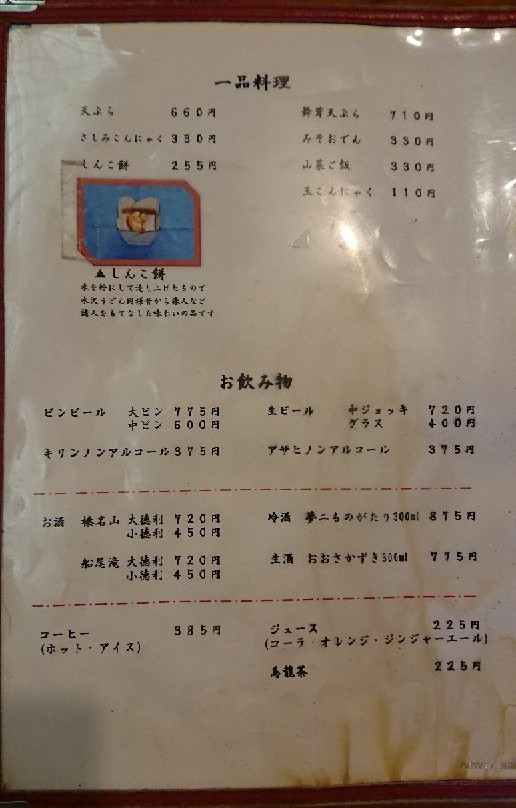 一品料理
天ぷら 660円
さしみこんにゃく 330円
しんこ餅 255円
舞茸天ぷら 710円
みそおでん 330円
山菜ご飯 330円
玉こんにゃく 110円
▲しんこ餅
米を粉にして造り上げたもので
水沢うどん同様昔から旅人など
諸人をもてなした味わいの品です
お飲み物
ビンビール 大ビン 775円
中ビン 600円
キリンノンアルコール 375円
生ビール 中ジョッキ 720円
グラス 400円
アサヒノンアルコール 375円
お酒 榛名山 大徳利 720円
小徳利 450円
船尾滝 大徳利 720円
小徳利 450円
冷酒 夢二ものがたり300ml 875円
生酒 おおさかずき300ml 775円
コーヒー 385円
(ホット・アイス)
ジュース 225円
(コーラ・オレンジ・ジンジャーエール)
烏龍茶 225円